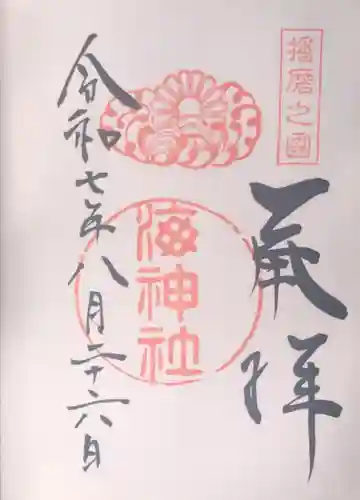 播磨之國
奉拝
海神社
令和七年八月二十六日